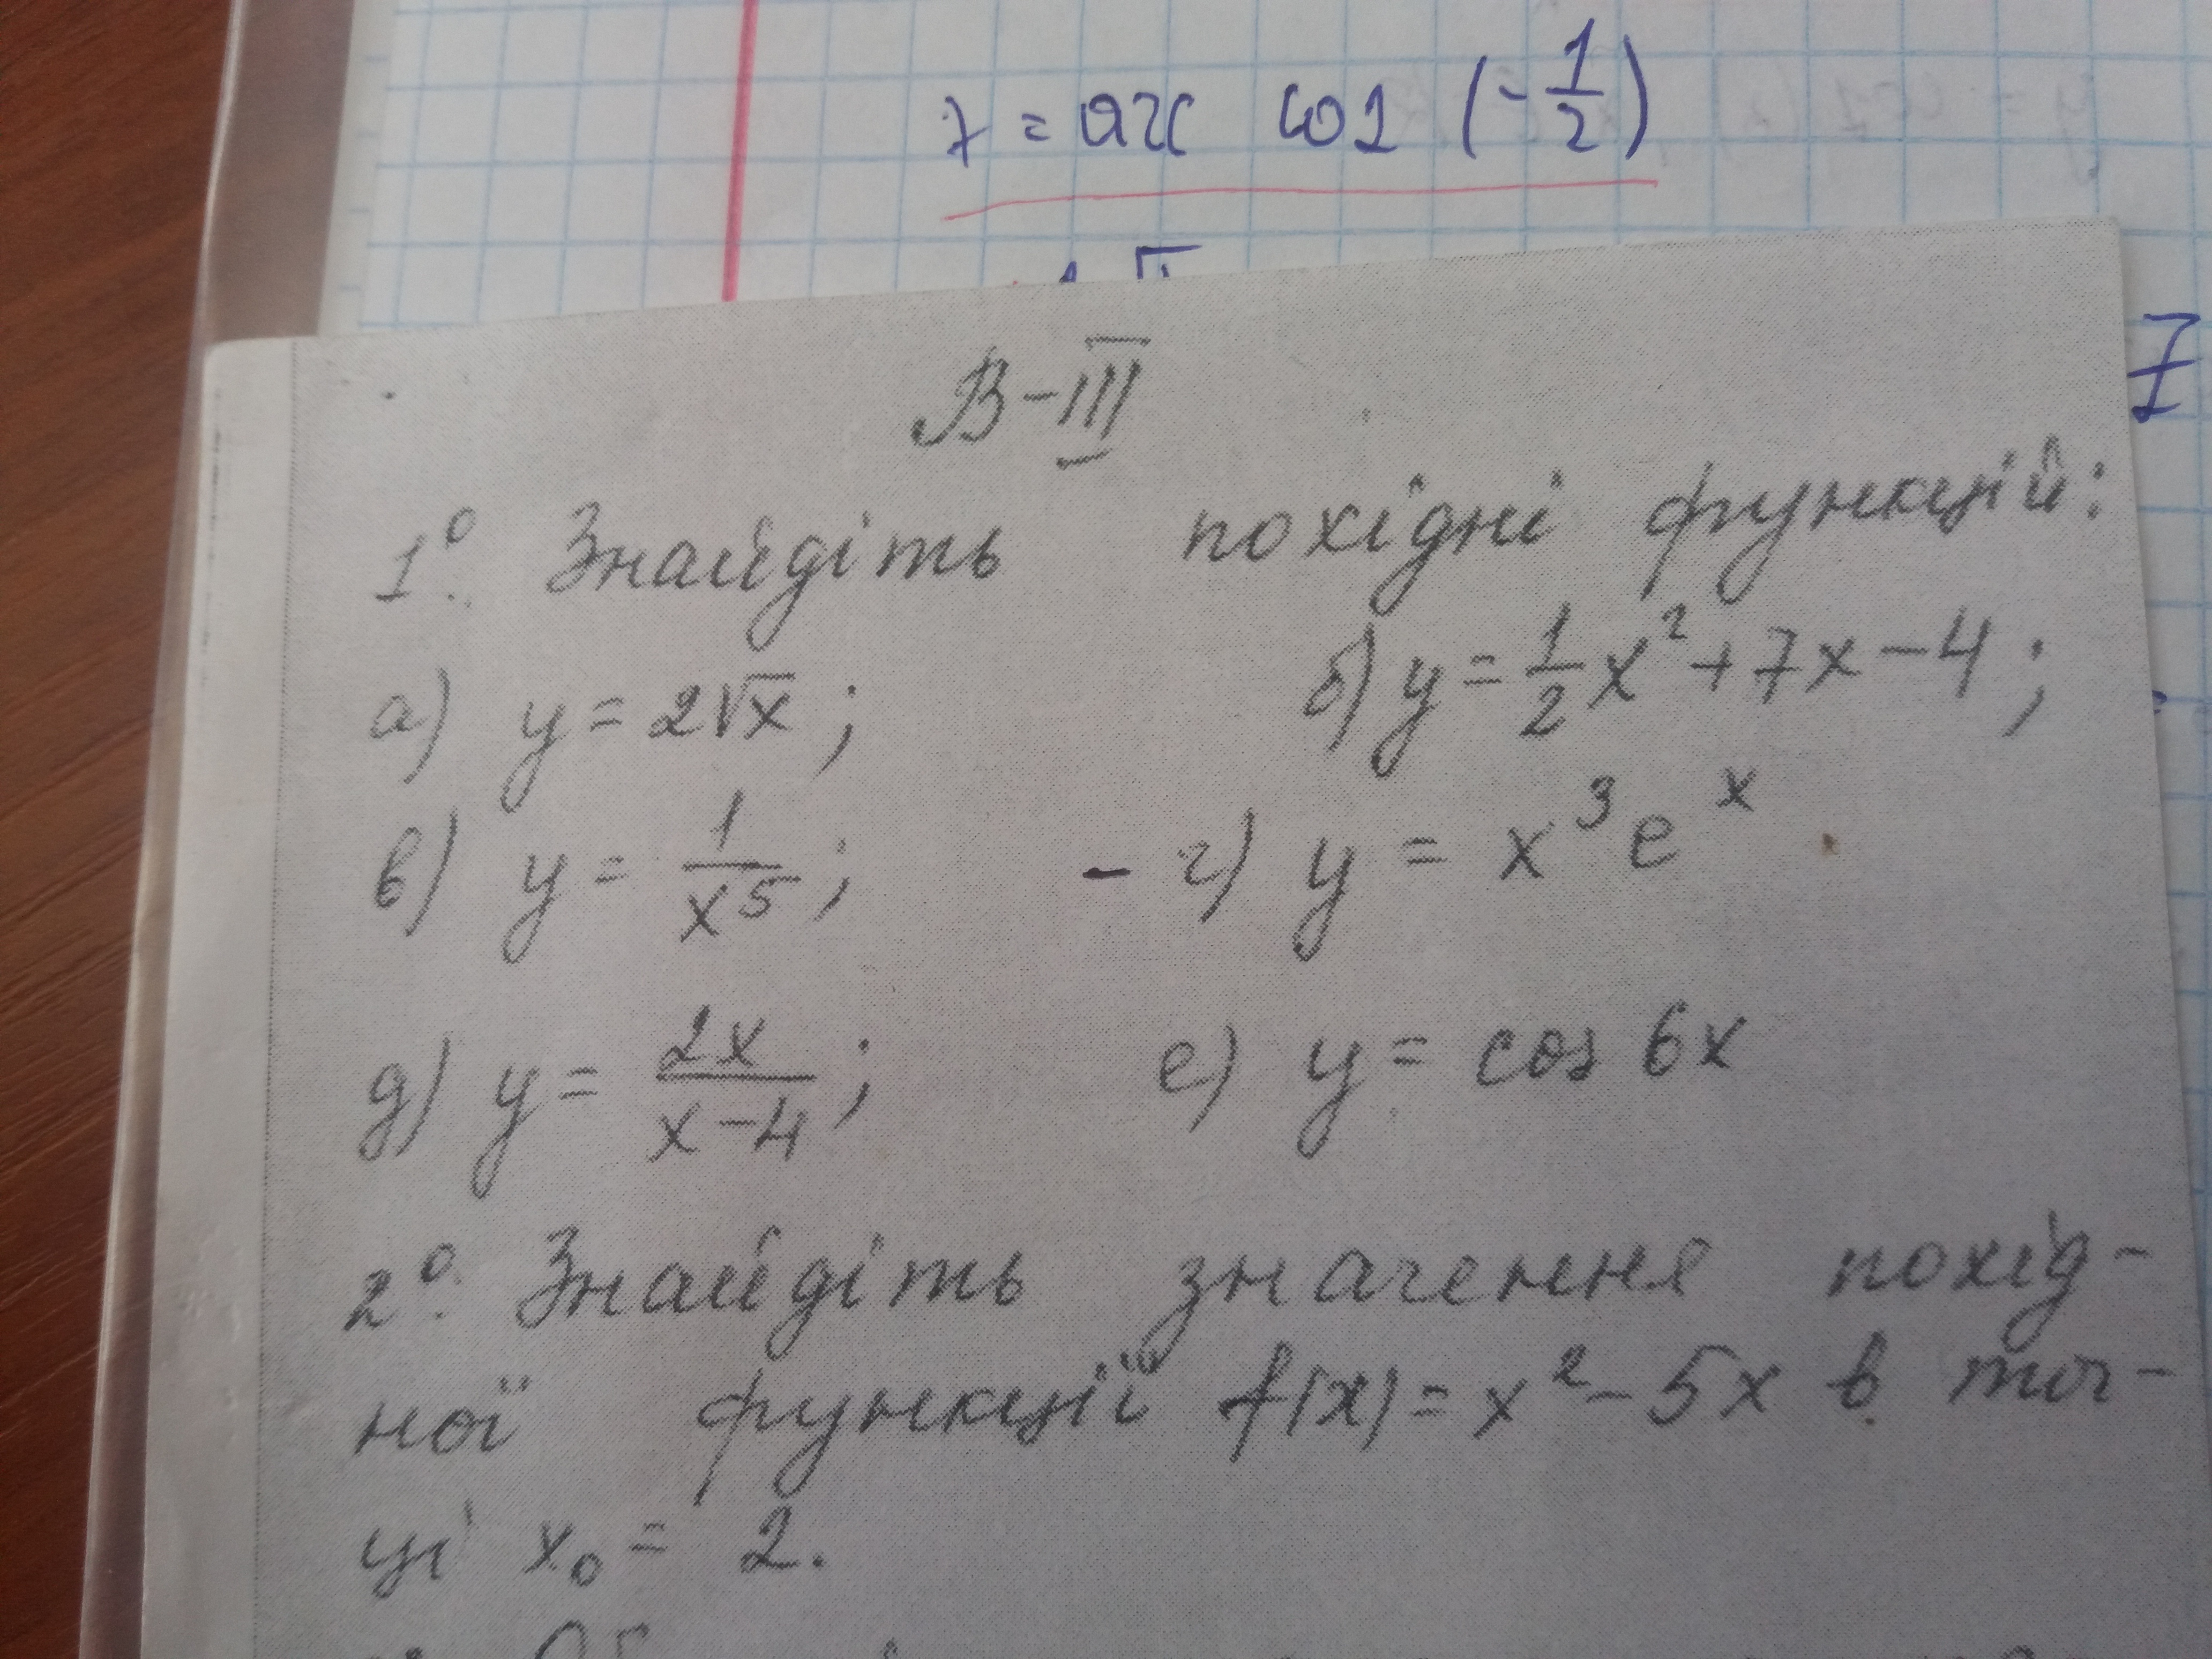 x = arc cos (-1/2)
7
В-III
1.° Знайдіть похідні функцій:
а) y = 2√x; б) y = 1/2 x² + 7x - 4;
в) y = 1/x⁵; - г) y = x³eˣ
д) y = 2x/x-4; е) y = cos 6x
2.° Знайдіть значення похід-
ної функції f(x) = x² - 5x в точ-
ці x₀ = 2.